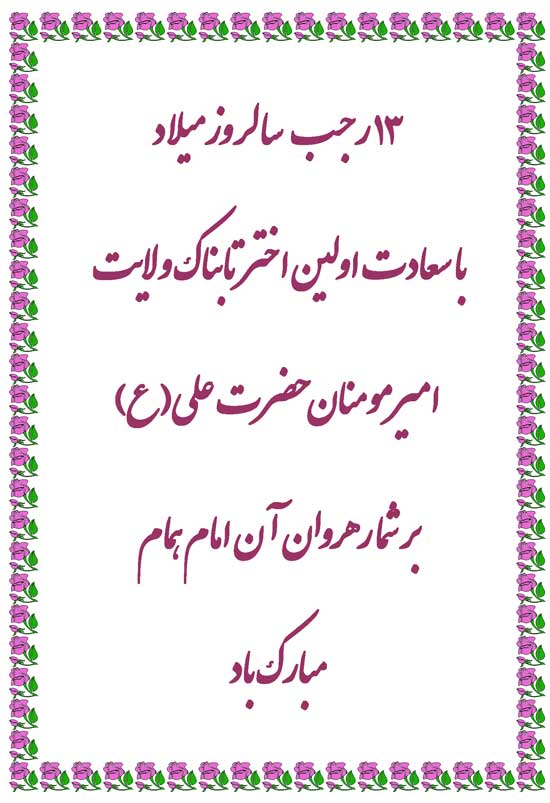 ۱۳ رجب سالروز میلاد
با سعادت اولین اختر تابناک ولایت
امیر مومنان حضرت علی (ع)
بر شما رهروان آن امام همام
مبارک باد